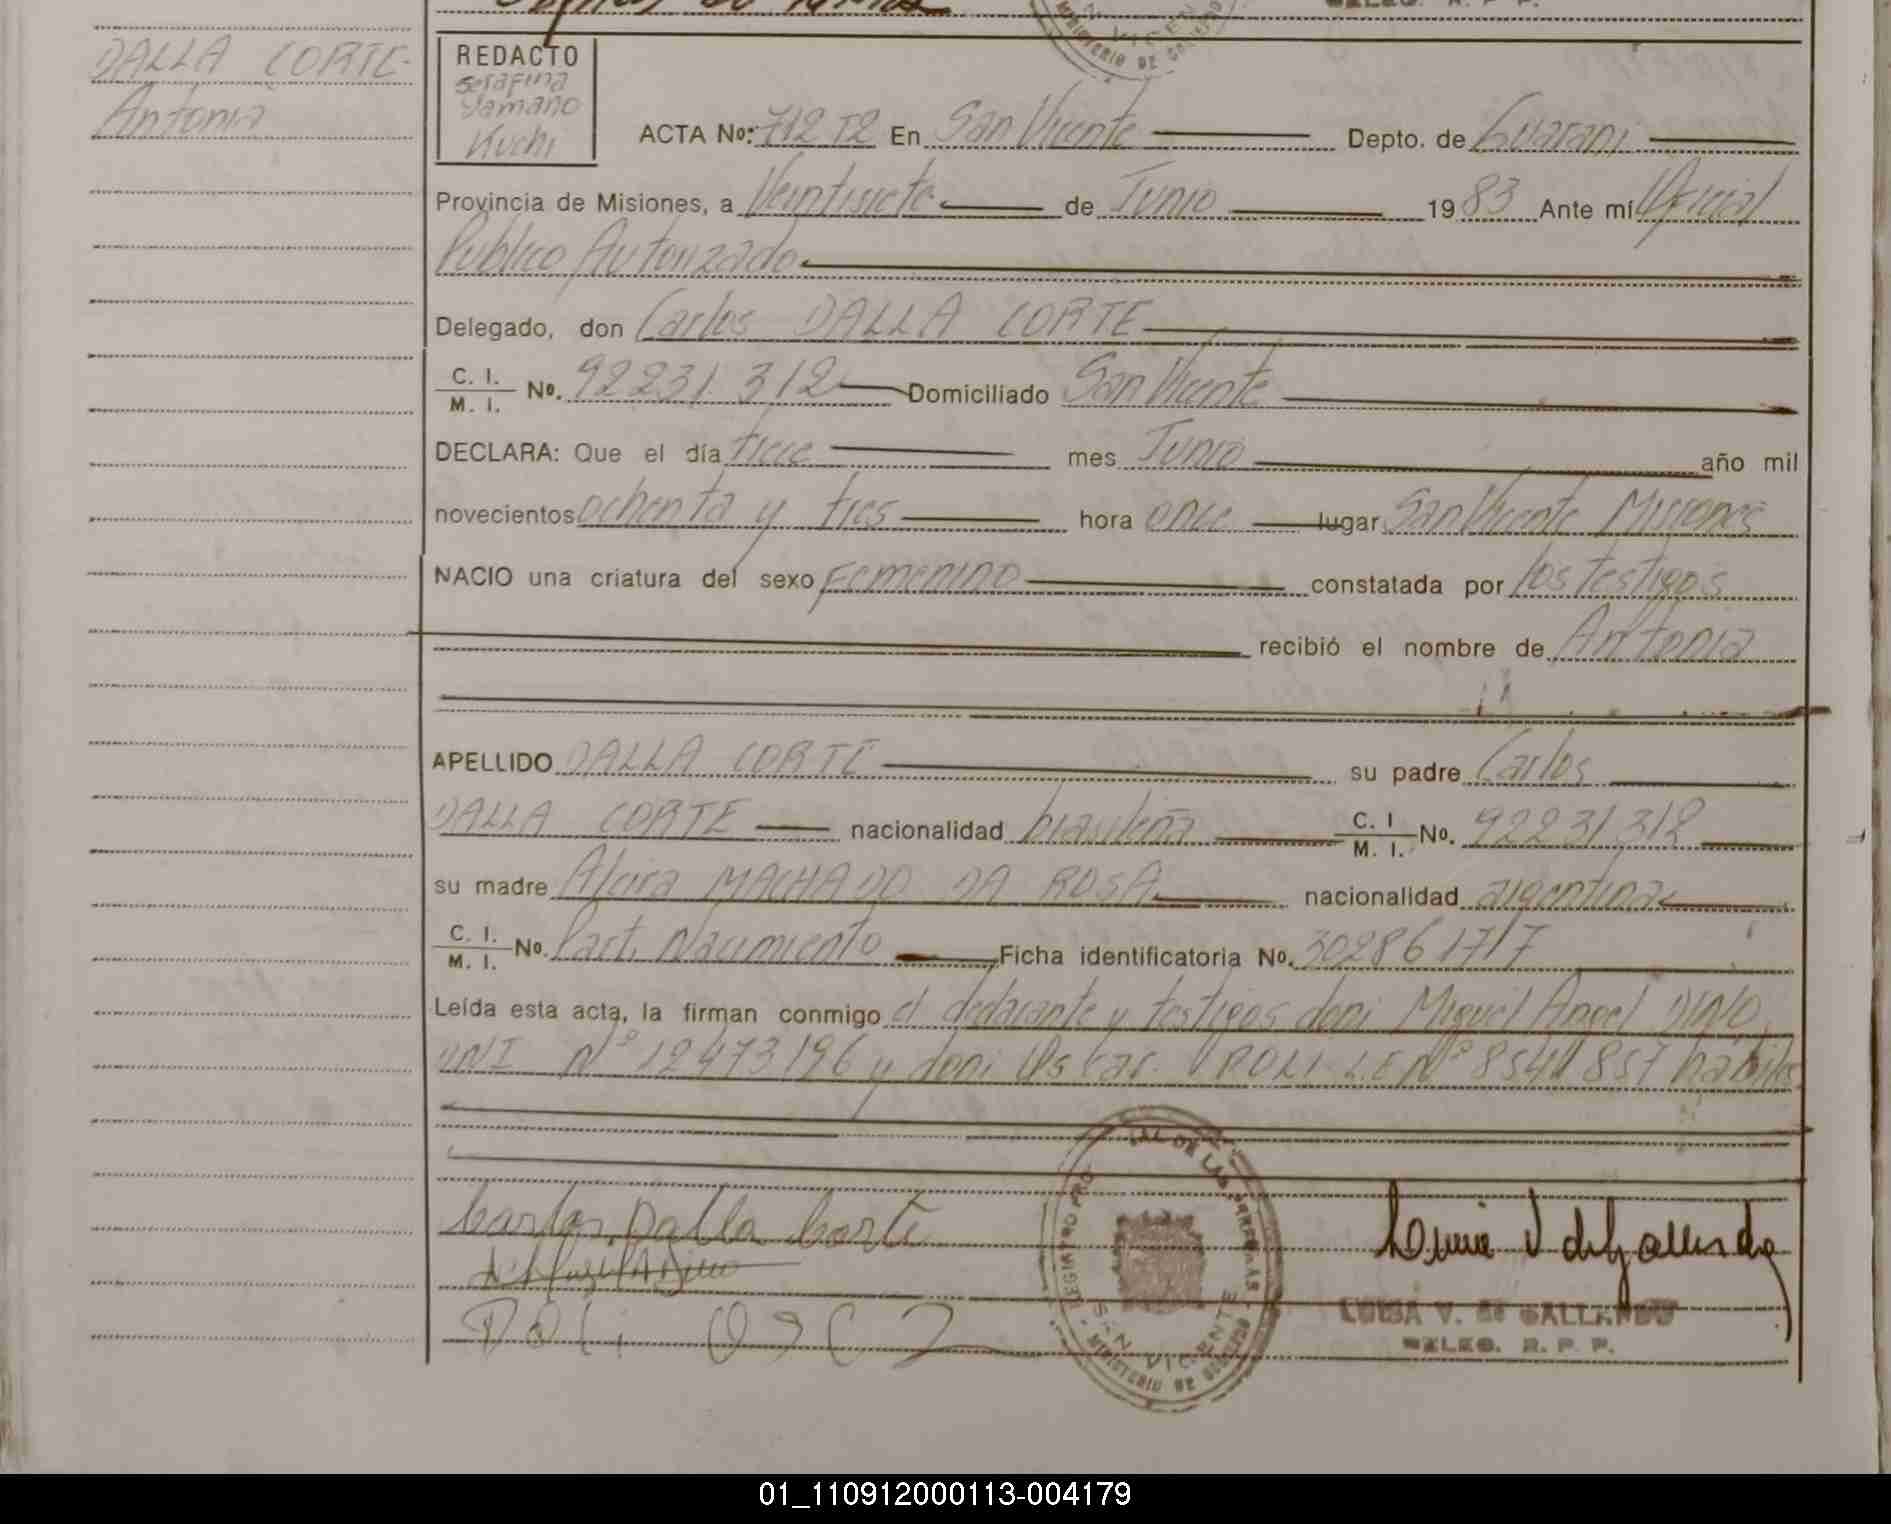 DALLA CORTE
Antonia
REDACTO
Serafina
Yamano
Kuchi
ACTA No: 712 T2 En San Vicente Depto. de Guarani
Provincia de Misiones, a Veintisiete de Junio 1983 Ante mí Oficial
Publico Autorizado
Delegado, don Carlos DALLA CORTE
C. I. M. I. No. 92231.312 Domiciliado San Vicente
DECLARA: Que el día trece mes Junio año mil
novecientos ochenta y tres hora once lugar San Vicente Misiones
NACIO una criatura del sexo Femenino constatada por los testigos
recibió el nombre de Antonia
APELLIDO DALLA CORTE su padre Carlos
DALLA CORTE nacionalidad brasileña C. I M. I. No. 92231312
su madre Alcira MACHADO DA ROSA nacionalidad argentina
C. I. M. I. No. Part. Nacimiento Ficha identificatoria No. 302861717
Leída esta acta, la firman conmigo el declarante y testigos don: Miguel Angel DINO
DNI Nº 12473196 y don: Oscar ROLI L.E Nº 8541857 habiles
Carlos Dalla Corte
REGISTRO PRO AL DE LAS PERSONAS
SAN VICENTE
MINISTERIO DE GOBIERNO
LUISA V. de GALLARDO
DELEG. R. P. P.
01_110912000113-004179